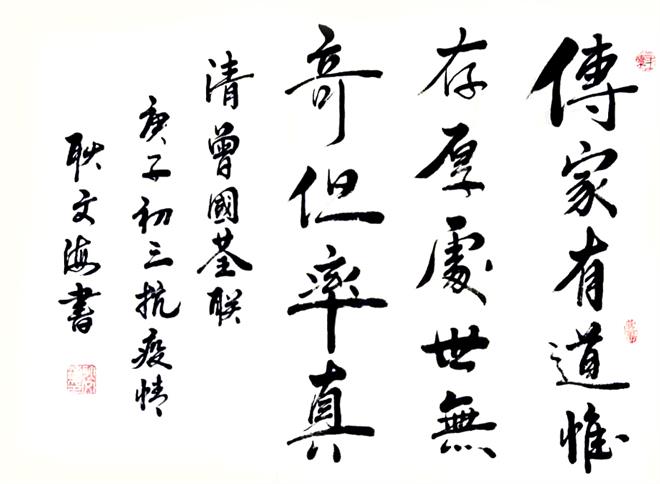 傳家有道惟
存厚處世無
奇但率真
清曾國荃联
庚子初三抗疫情
耿文海書